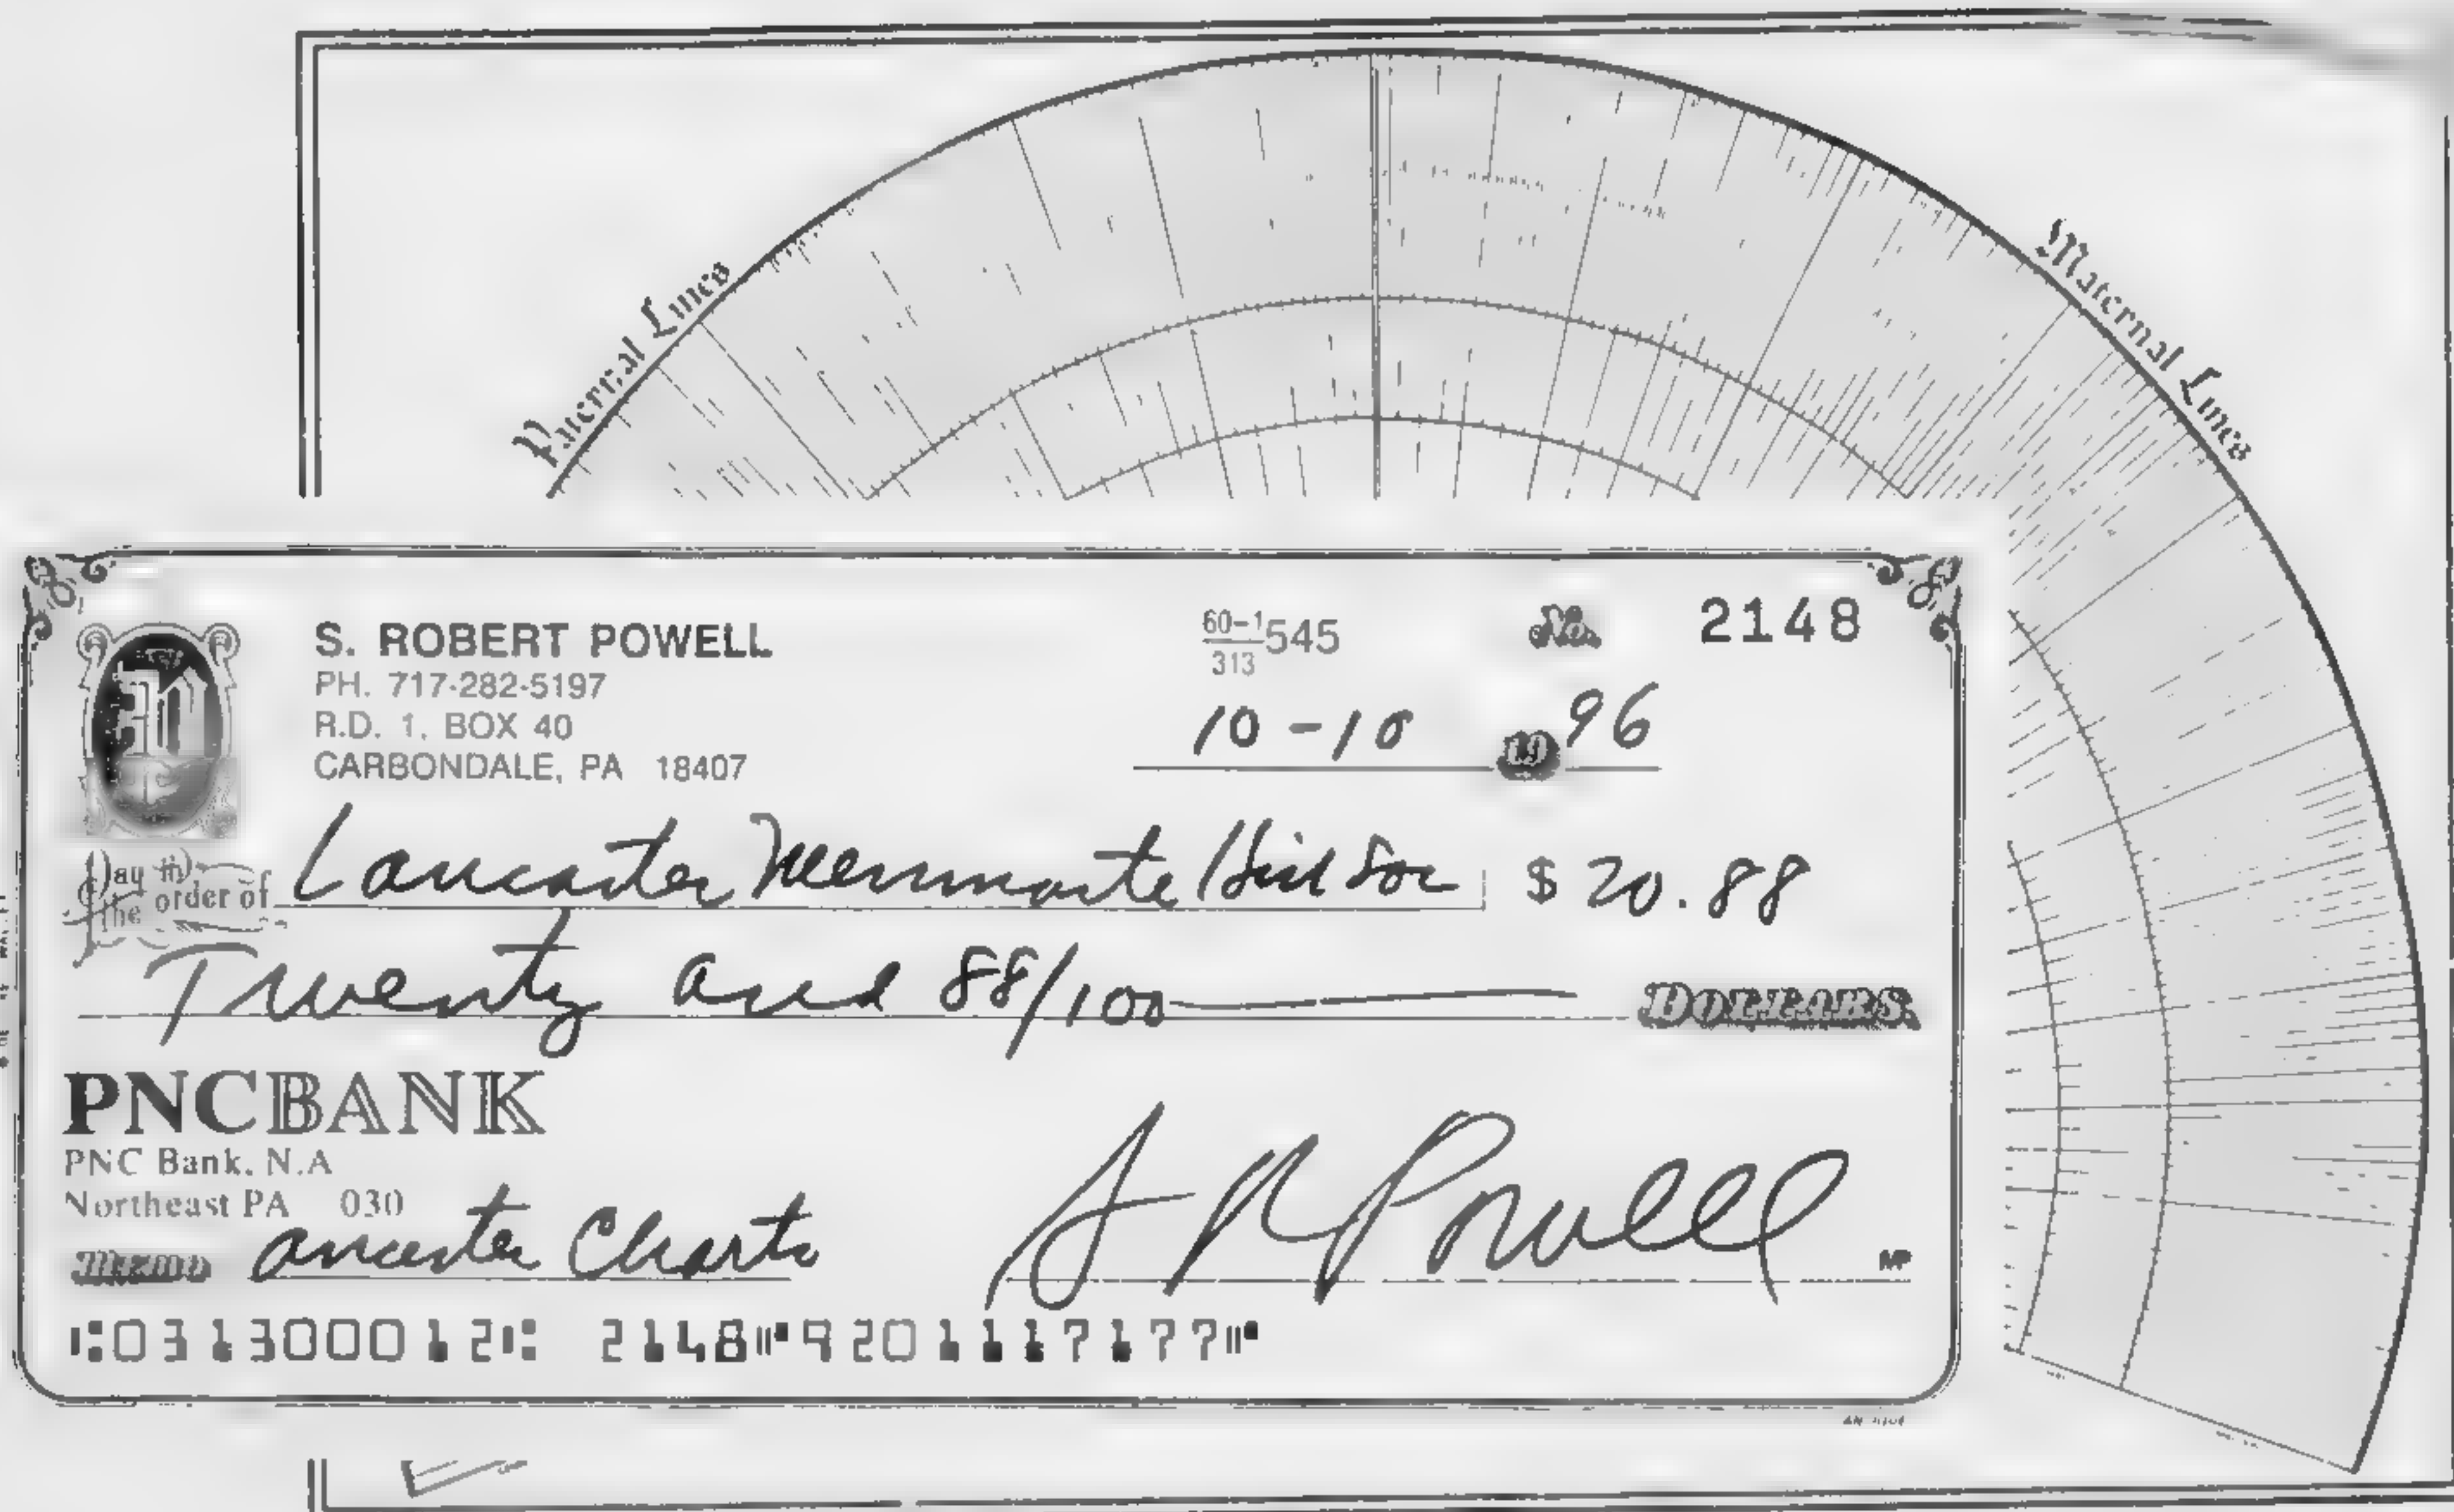 Paternal Lines
Maternal Lines
S. ROBERT POWELL
PH. 717-282-5197
R.D. 1, BOX 40
CARBONDALE, PA 18407
60-1/313 545
No. 2148
10-10 19 96
Pay to the order of Lancaster Mennonite Hist Soc $ 20.88
Twenty and 88/100 DOLLARS
PNCBANK
PNC Bank, N.A
Northeast PA 030
Memo ancester Charts S R Powell MP
⑆031300012⑆ 2148⑈9201117177⑈